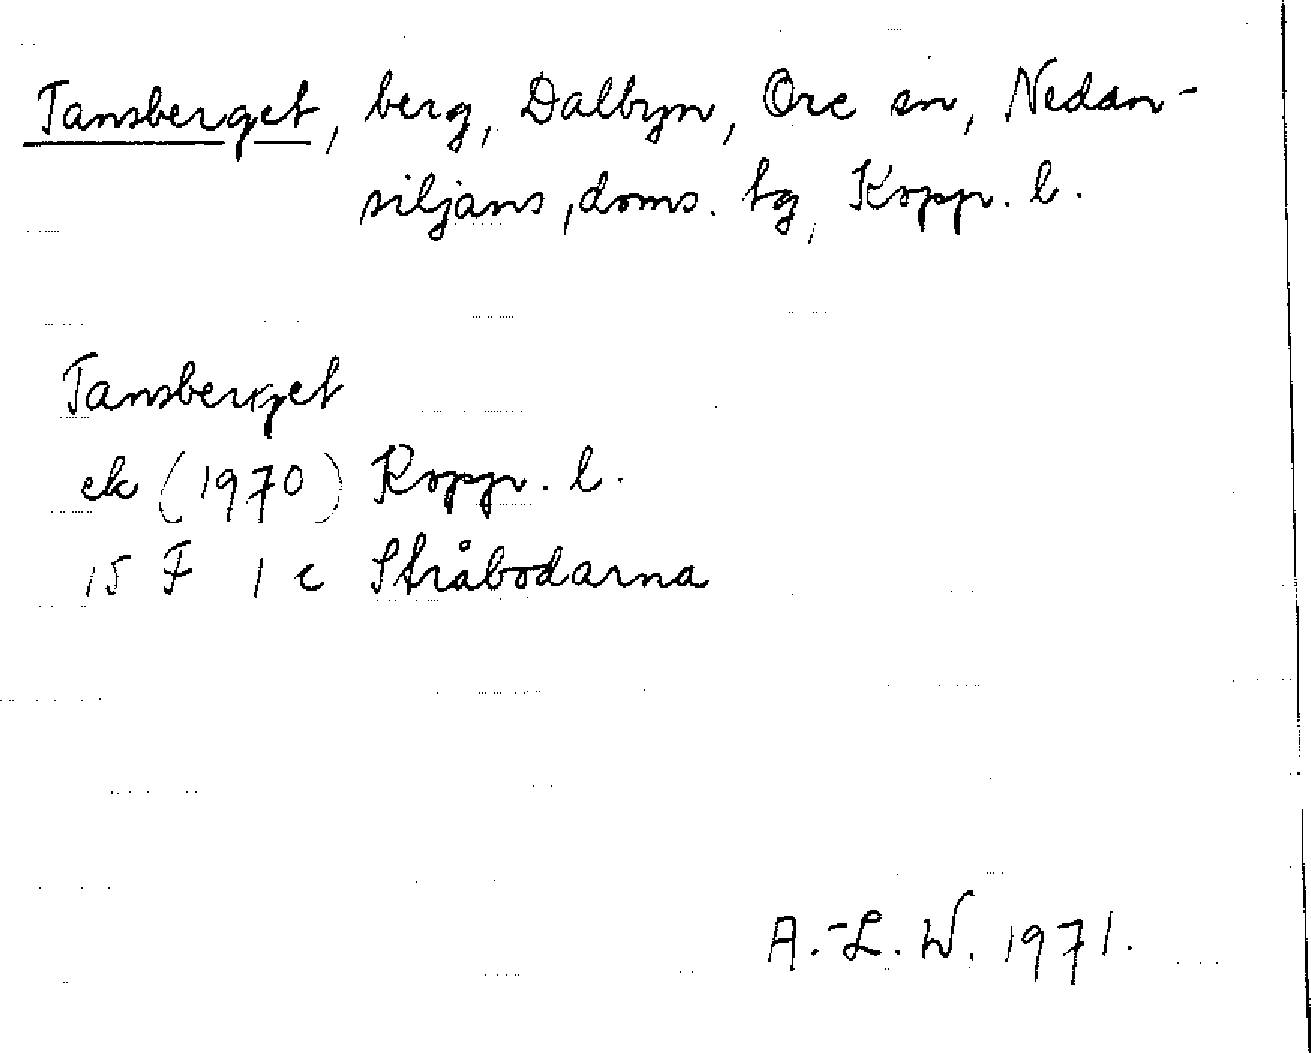 Tansberget, berg, Dalbyn, Ore sn, Nedan-
siljans, doms. tg, Kopp. l.
Tansberget
ek (1970) Kopp. l.
15 F 1 c Stråbodarna
A.-L. W. 1971.